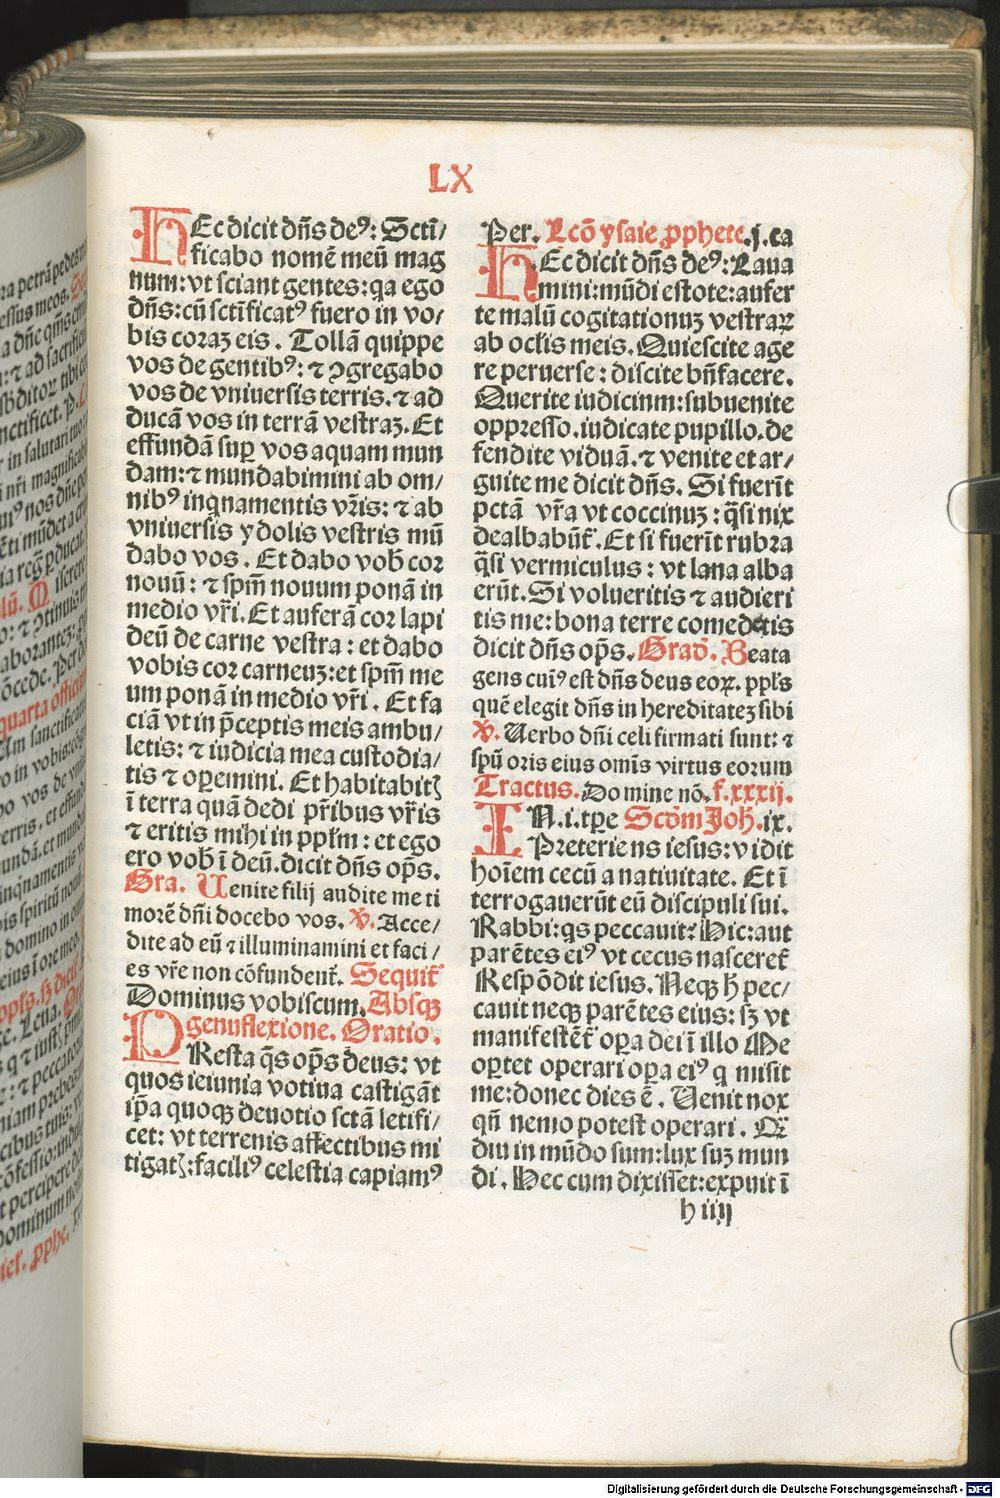 LX
HEc dicit dñs deꝰ: Scti/
ficabo nomē meū mag
num: vt sciant gentes: qa ego
dñs: cū sctificatꝰ fuero in vo/
bis coraꝫ eis. Tollā quippe
vos de gentibꝰ: ⁊ ꝯgregabo
vos de vniuersis terris. ⁊ ad
ducā vos in terrā vestraꝫ. Et
effundā suꝑ vos aquam mun
dam: ⁊ mundabimini ab om/
nibꝰ inqnamentis vr̄is: ⁊ ab
vniuersis ydolis vestris mū
dabo vos. Et dabo vob̄ cor
nouū: ⁊ spm̄ nouum ponā in
medio vr̄i. Et auferā cor lapi
deū de carne vestra: et dabo
vobis cor carneuꝫ: et spm̄ me
um ponā in medio vr̄i. Et fa
ciā vt in p̄ceptis meis ambu/
letis: ⁊ iudicia mea custodia/
tis ⁊ oꝑemini. Et habitabitꝭ
ī terra quā dedi pr̄ibus vr̄is
⁊ eritis mihi in ppłm: et ego
ero vob̄ ī deū. dicit dñs op̄s.
Gra. Uenite filij audite me ti
morē dñi docebo vos. ℣. Acce/
dite ad eū ⁊ illuminamini et faci/
es vr̄e non cōfundent̄. Sequit̄
Dominus vobiscum. Absqꝫ
genuflexione. Oratio.
PResta q̄s op̄s deus: vt
quos ieiunia votiua castigāt
ip̄a quoqꝫ deuotio sctā letifi/
cet: vt terrenis affectibus mi
tigatꝭ: faciliꝰ celestia capiamꝰ
Per. Lcō ysaie ꝓphete. j. ca
HEc dicit dñs deꝰ: Laua
mini: mūdi estote: aufer
te malū cogitationuꝫ vestraꝝ
ab ocłis meis. Quiescite age
re peruerse: discite bn̄facere.
Querite iudicinm: subuenite
oppresso. iudicate pupillo. de
fendite viduā. ⁊ venite et ar/
guite me dicit dñs. Si fuerīt
pctā vr̄a vt coccinuꝫ: q̄si nix
dealbabūt̄. Et si fuerīt rubra
q̄si vermiculus: vt lana alba
erūt. Si volueritis ⁊ audieri
tis me: bona terre comedetis
dicit dñs op̄s. Grad̄. Beata
gens cuiꝰ est dñs deus eoꝝ. ppłs
quē elegit dñs in hereditateꝫ sibi
℣. Uerbo dñi celi firmati sunt: ⁊
spū oris eius omīs virtus eorum
Tractus. Domine nō. f. xxxij.
IN. i. tꝑe Scd̄m Joh̄. ix.
Preteriens iesus: vidit
hoīem cecū a natiuitate. Et ī
terrogauerūt eū discipuli sui.
Rabbi: qs peccauit? Hic: aut
parētes eiꝰ vt cecus nasceret̄
Respōdit iesus. Neqꝫ h̄ pec/
cauit neqꝫ parētes eius: sꝫ vt
manifestēt̄ oꝑa dei ī illo Me
oꝑtet operari oꝑa eiꝰ q misit
me: donec dies ē. Uenit nox
qñ nemo potest operari. Q̄
diu in mūdo sum: lux suꝫ mun
di. Hec cum dixisset: expuit ī
h iiij
Digitalisierung gefördert durch die Deutsche Forschungsgemeinschaft - DFG